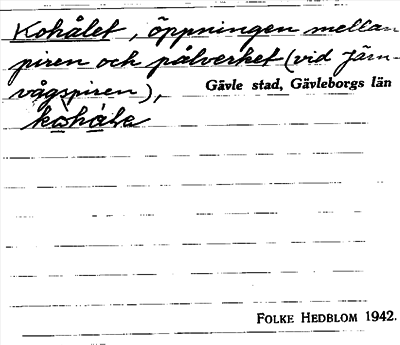 Kohålet, öppningen mellan
piren och pålverket (vid Järn-
vågspiren),
Gävle stad, Gävleborgs län
kohåle
FOLKE HEDBLOM 1942.